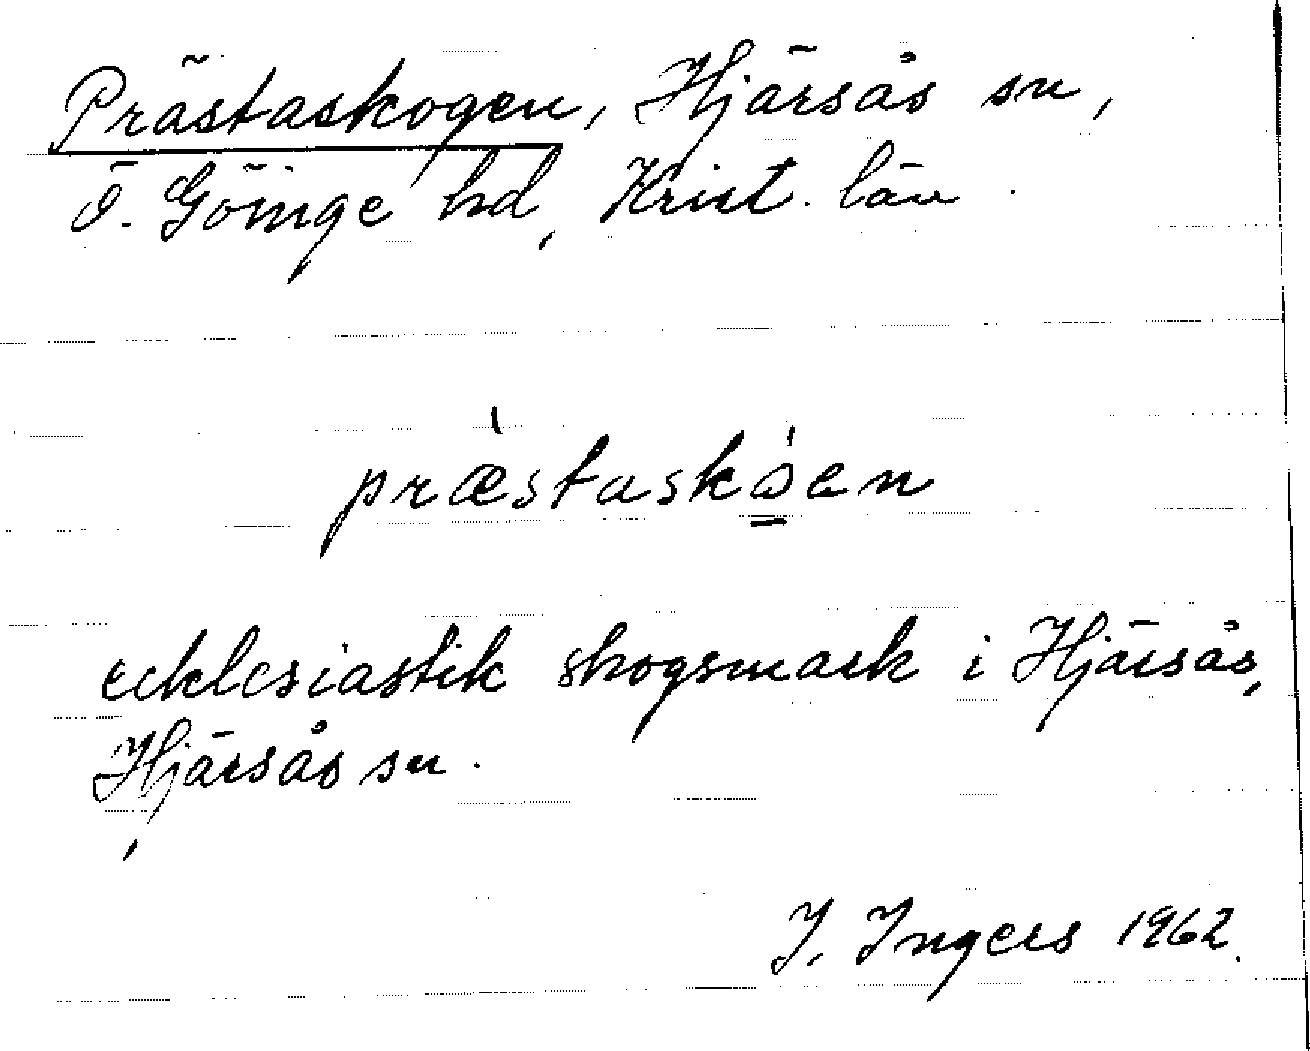 Prästaskogen, Hjärsås sn,
Ö. Göinge hd, Krist. län.
præ̀staskɷ̠́en
ecklesiastik skogsmark i Hjärsås,
Hjärsås sn.
I. Ingers 1962.